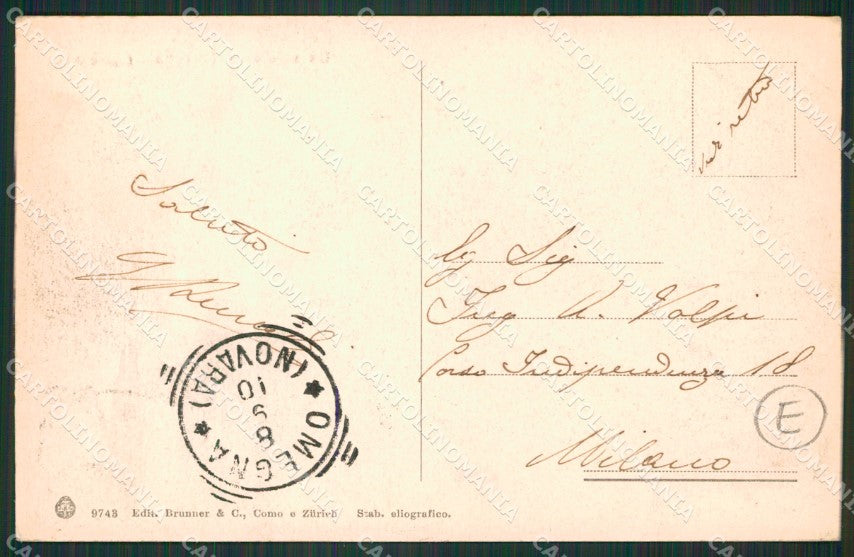 vedi retro
Saluto
Eg Sig
Ing A. Volpi
Corso Indipendenza 18
Milano
E
OMEGNA
(NOVARA)
8
9
10
9743 Edit. Brunner & C., Como e Zürich Stab. eliografico.
CARTOLINOMANIA